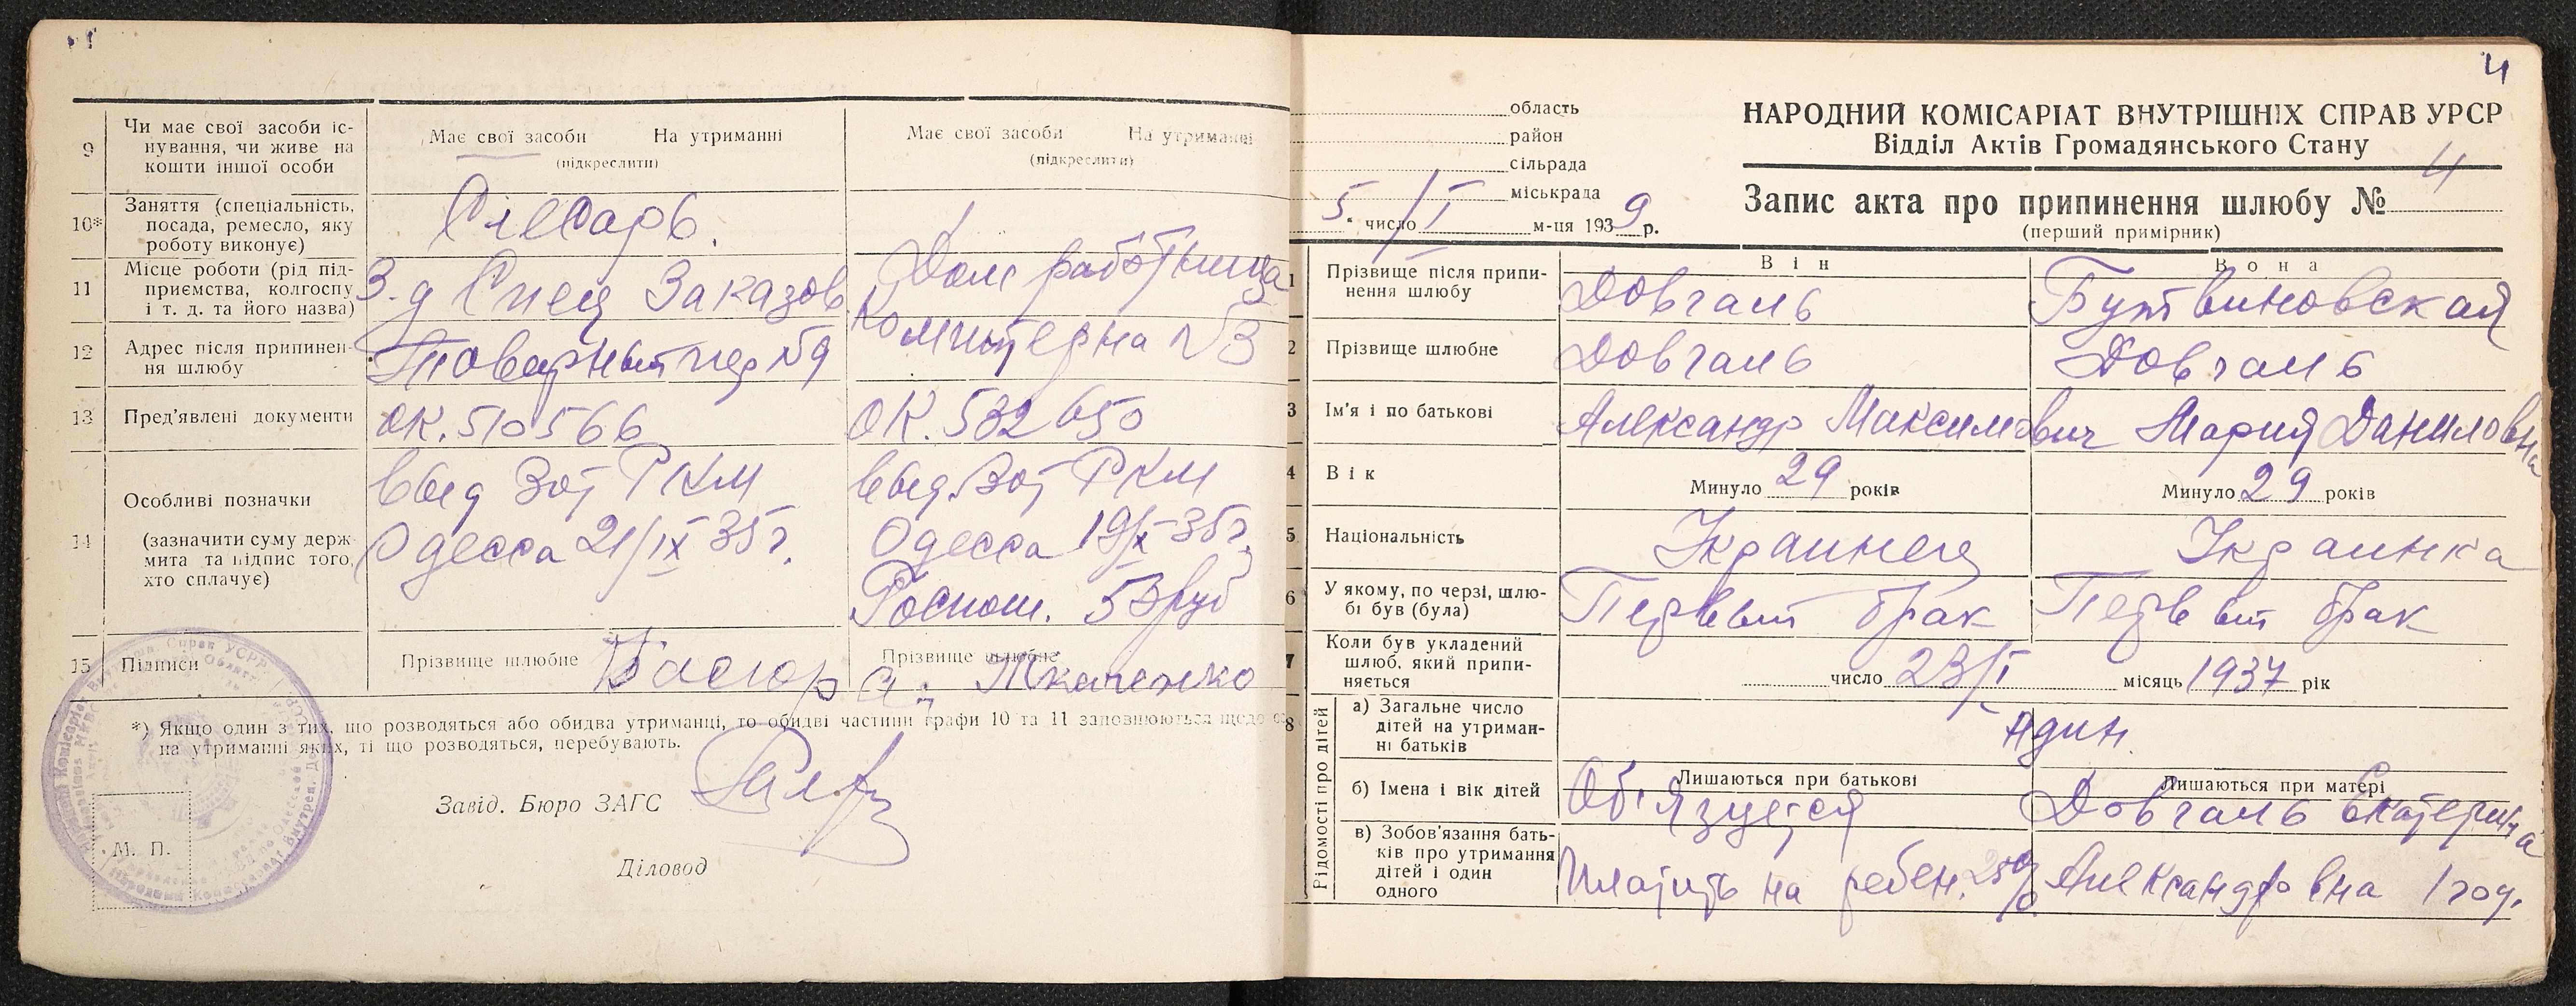 9
Чи має свої засоби іс-
нування, чи живе на
кошти іншої особи
Має свої засоби На утриманні
(підкреслити)
Має свої засоби На утриманні
(підкреслити)
10*
Заняття (спеціальність,
посада, ремесло, яку
роботу виконує)
Слесарь.
11
Місце роботи (рід під-
приємства, колгоспу
і т. д. та його назва)
З-д Спец Заказов
Дом работница
12
Адрес після припинен-
ня шлюбу
Товарный пер №9
Коминтерна №3
13
Пред'явлені документи
ОК. 510566
ОК. 532650
14
Особливі позначки
(зазначити суму держ-
мита та підпис того,
хто сплачує)
выд 3от РКМ
Одесса 21/IX 35 г.
выд. 3от РКМ
Одесса 19/X 35 г.
Роспош. 53 руб
15
Підписи
Прізвище шлюбне
Прізвище шлюбне Ткаченко
*) Якщо один з тих, що розводяться або обидва утриманці, то обидві частини графи 10 та 11 заповнюються щодо
на утриманні яких, ті що розводяться, перебувають.
Завід. Бюро ЗАГС
Діловод
М. П.
4
область
район
сільрада
міськрада
5. число /I м-ця 1939 р.
НАРОДНИЙ КОМІСАРІАТ ВНУТРІШНІХ СПРАВ УРСР
Відділ Актів Громадянського Стану
Запис акта про припинення шлюбу № 4
(перший примірник)
Він
Вона
1
Прізвище після припи-
нення шлюбу
Довгаль
Бутвиновская
2
Прізвище шлюбне
Довгаль
Довгаль
3
Ім'я і по батькові
Александр Максимович
Мария Даниловна
4
Вік
Минуло 29 років
Минуло 29 років
5
Національність
Украинец
Украинка
6
У якому, по черзі, шлю-
бі був (була)
Первый брак
Первый брак
7
Коли був укладений
шлюб, який припи-
няється
число 23/I місяць 1937 рік
8
Відомості про дітей
а) Загальне число
дітей на утриман-
ні батьків
Один.
б) Імена і вік дітей
Лишаються при батькові
Лишаються при матері
Обязуется
Довгаль Екатерина
в) Зобов'язання бать-
ків про утримання
дітей і один
одного
платить на ребен. 25%
Александровна 1 год.